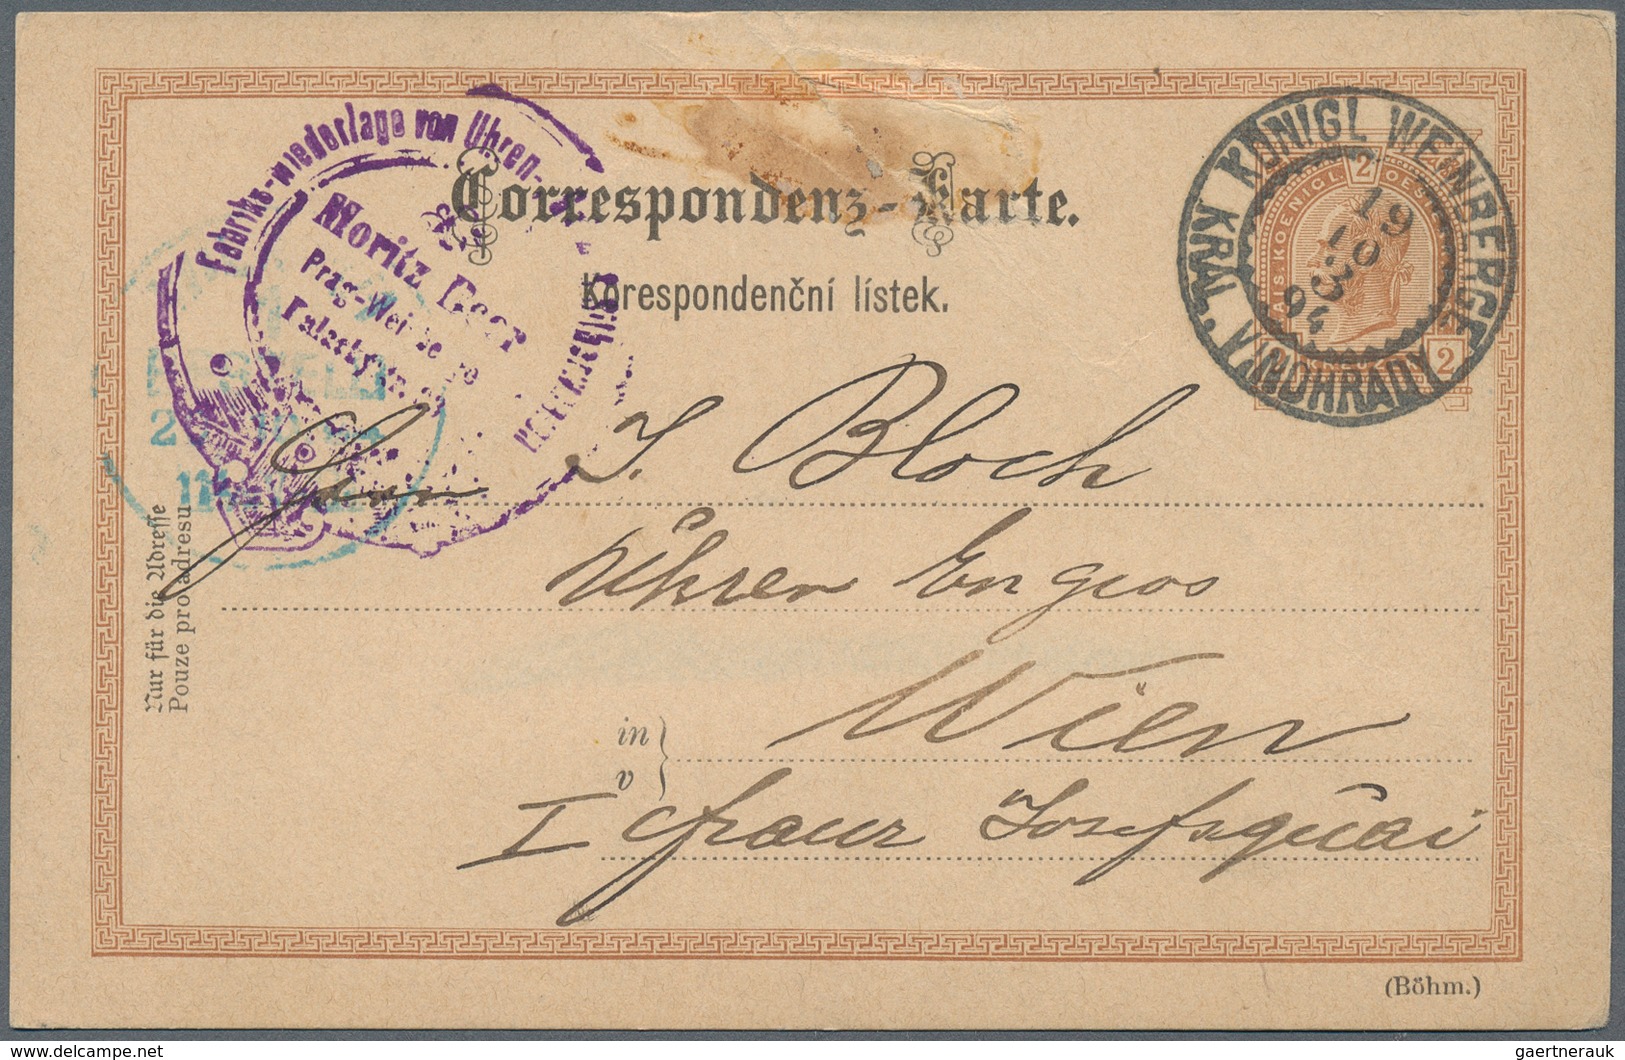 Correspondenz-Karte.
Korespondenční lístek.
Fabriks-niederlage von Uhren-
Moritz Beer
Prag-Weinberge
Palackystr.
KÖNIGL WEINBERGE
KRÁL. VINOHRADY
19
10
3
94
KAIS. KOENIGL. OEST.
2
2
Herrn J. Bloch
Uhren Engros
in Wien
v
I Franz Josefsquai
Nur für die Adresse
Pouze pro adresu
(Böhm.)
www.delcampe.net
gaertnerauk